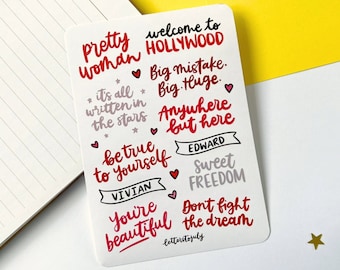 pretty woman
welcome to HOLLYWOOD
Big Mistake.
Big. Huge.
it's all written in the stars
Anywhere but here
be true to yourself
EDWARD
VIVIAN
sweet FREEDOM
You're beautiful
Don't fight the dream
letteritsjuly